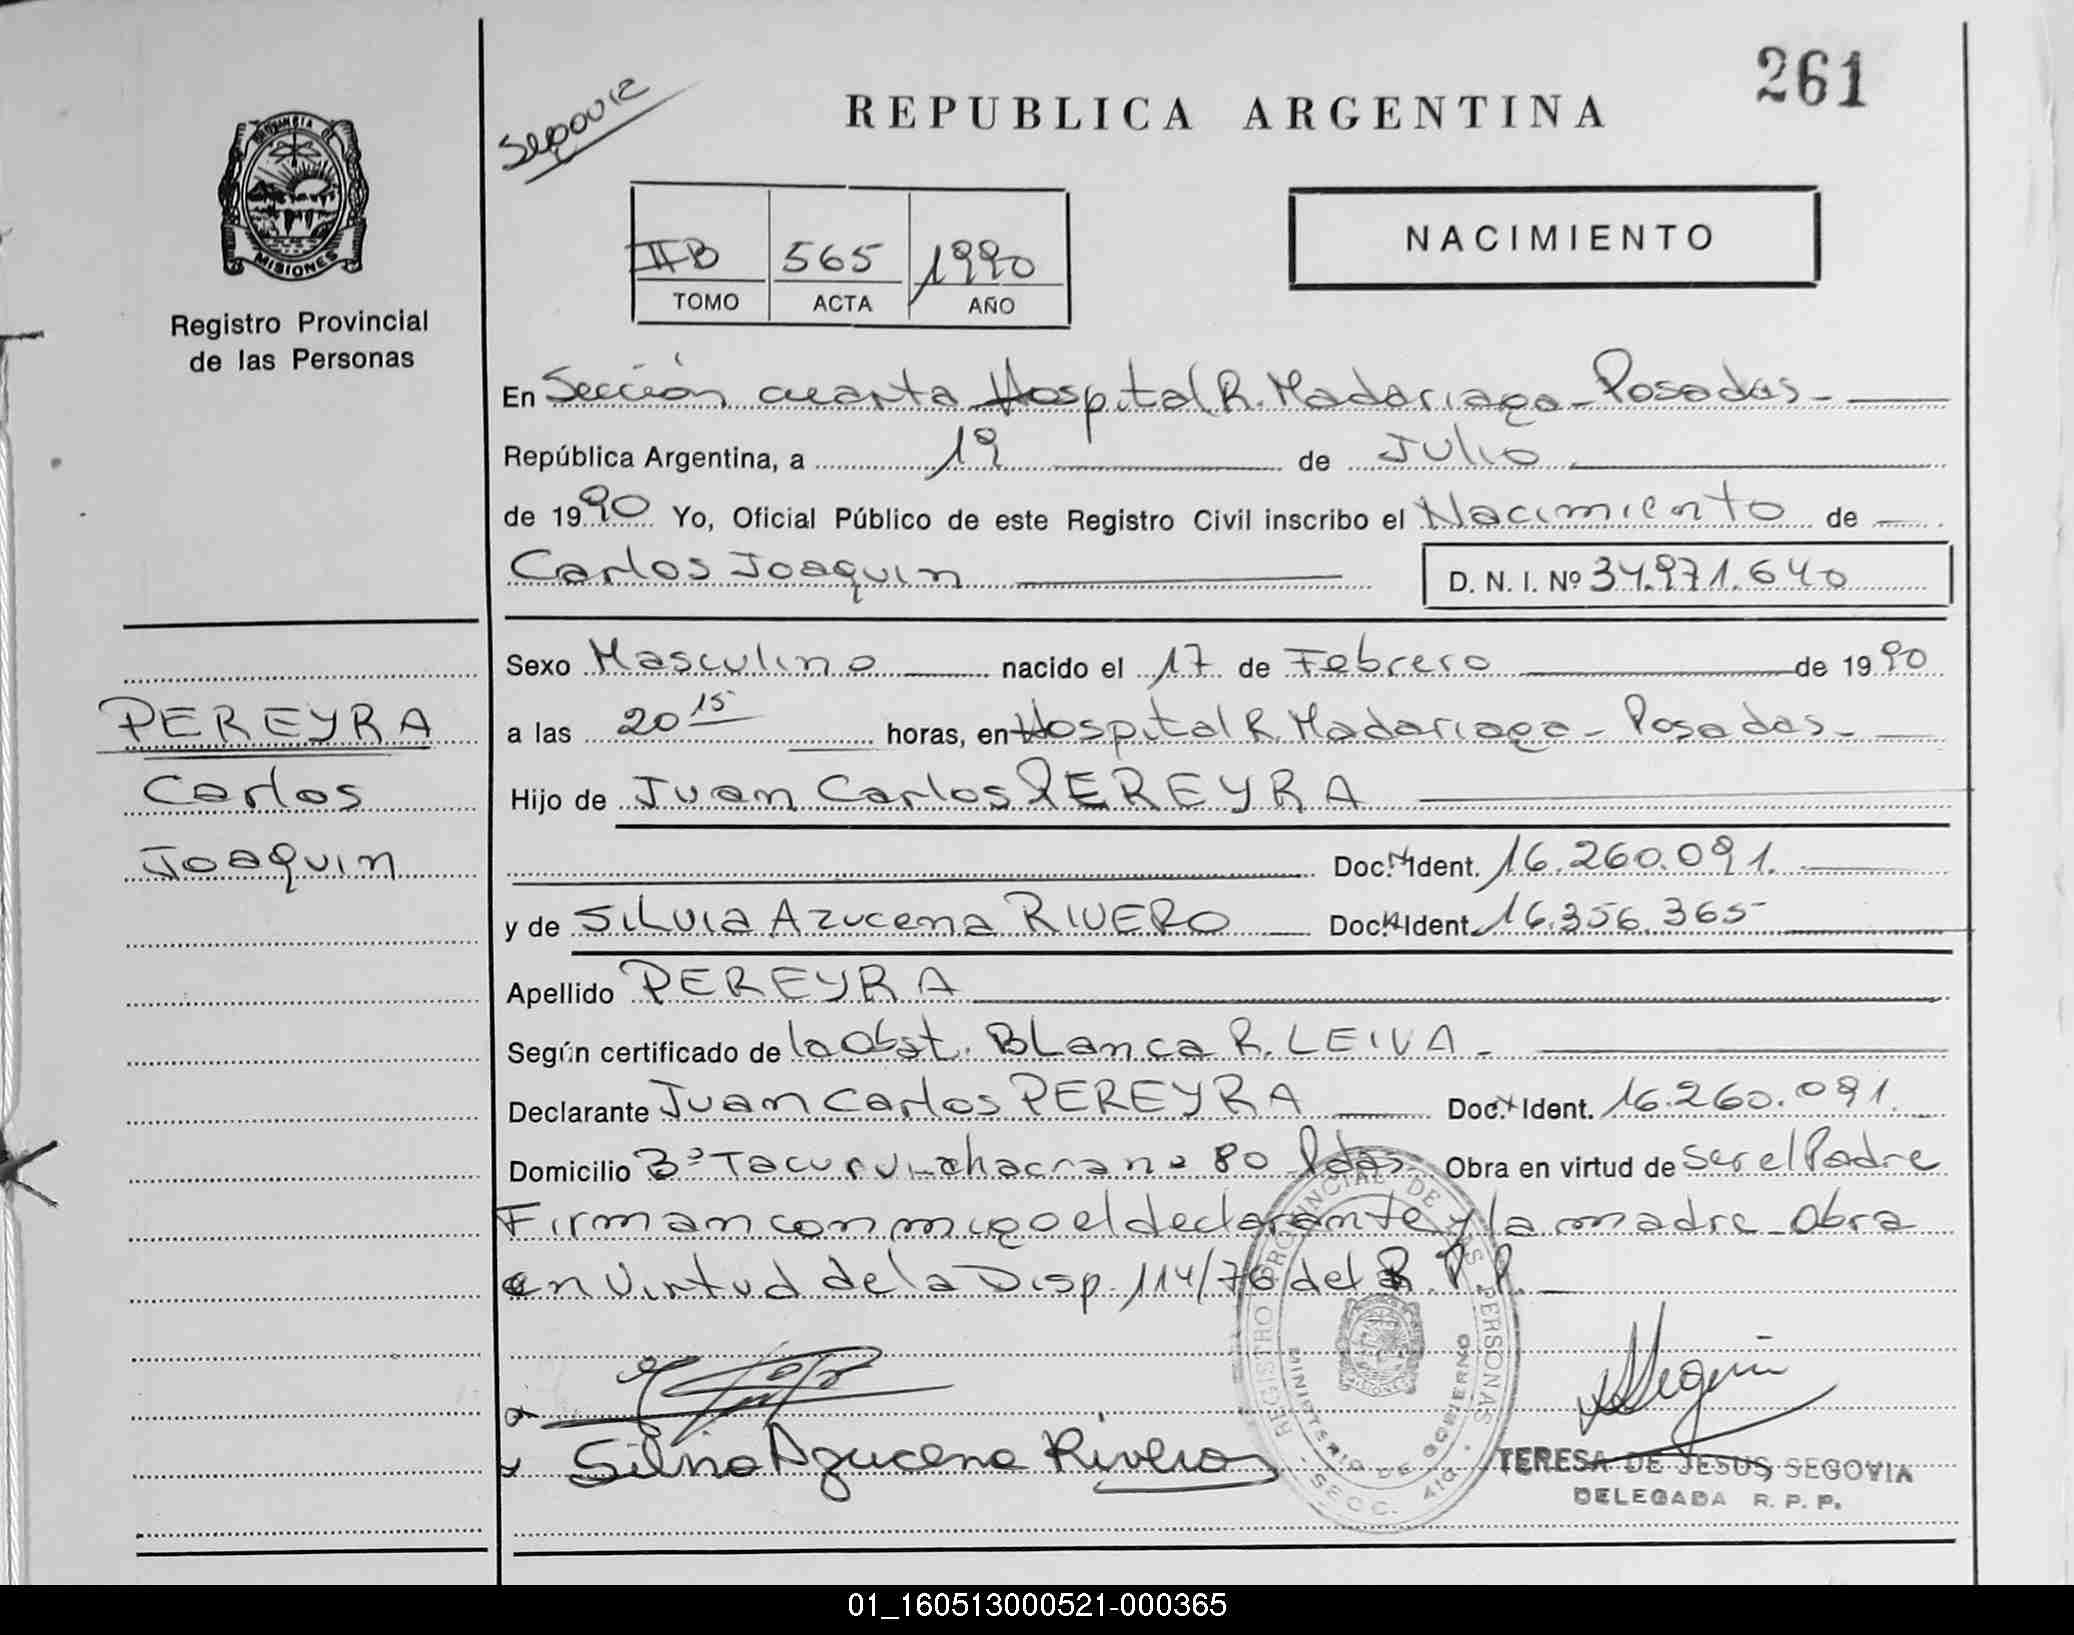 261
Segovia
REPUBLICA ARGENTINA
PROVINCIA DE
MISIONES
Registro Provincial
de las Personas
IIB 565 1990
TOMO ACTA AÑO
NACIMIENTO
En Sección cuarta Hospital R. Madariaga - Posadas -
República Argentina, a 19 de Julio
de 1990 Yo, Oficial Público de este Registro Civil inscribo el Nacimiento de
Carlos Joaquin D. N. I. Nº 34.971.640
Sexo Masculino nacido el 17 de Febrero de 1990
PEREYRA
Carlos
Joaquin
a las 20 15 horas, en Hospital R. Madariaga - Posadas -
Hijo de Juan Carlos PEREYRA
Doc. Ident. 16.260.091.
y de Silvia Azucena RIVERO Doc. Ident. 16.356.365
Apellido PEREYRA
Según certificado de la Obst. Blanca R. LEIVA -
Declarante Juan Carlos PEREYRA Doc. Ident. 16.260.091.
Domicilio Bº Tacurú - chacra nº 80 Pdas Obra en virtud de ser el Padre
Firman conmigo el declarante y la madre - Obra
en virtud de la Disp. 114/76 del R. P. P.
REGISTRO PROVINCIAL DE LAS PERSONAS
MINISTERIO DE GOBIERNO
SECC. 4ta
Silvia Azucena Rivero
TERESA DE JESUS SEGOVIA
DELEGADA R. P. P.
01_160513000521-000365